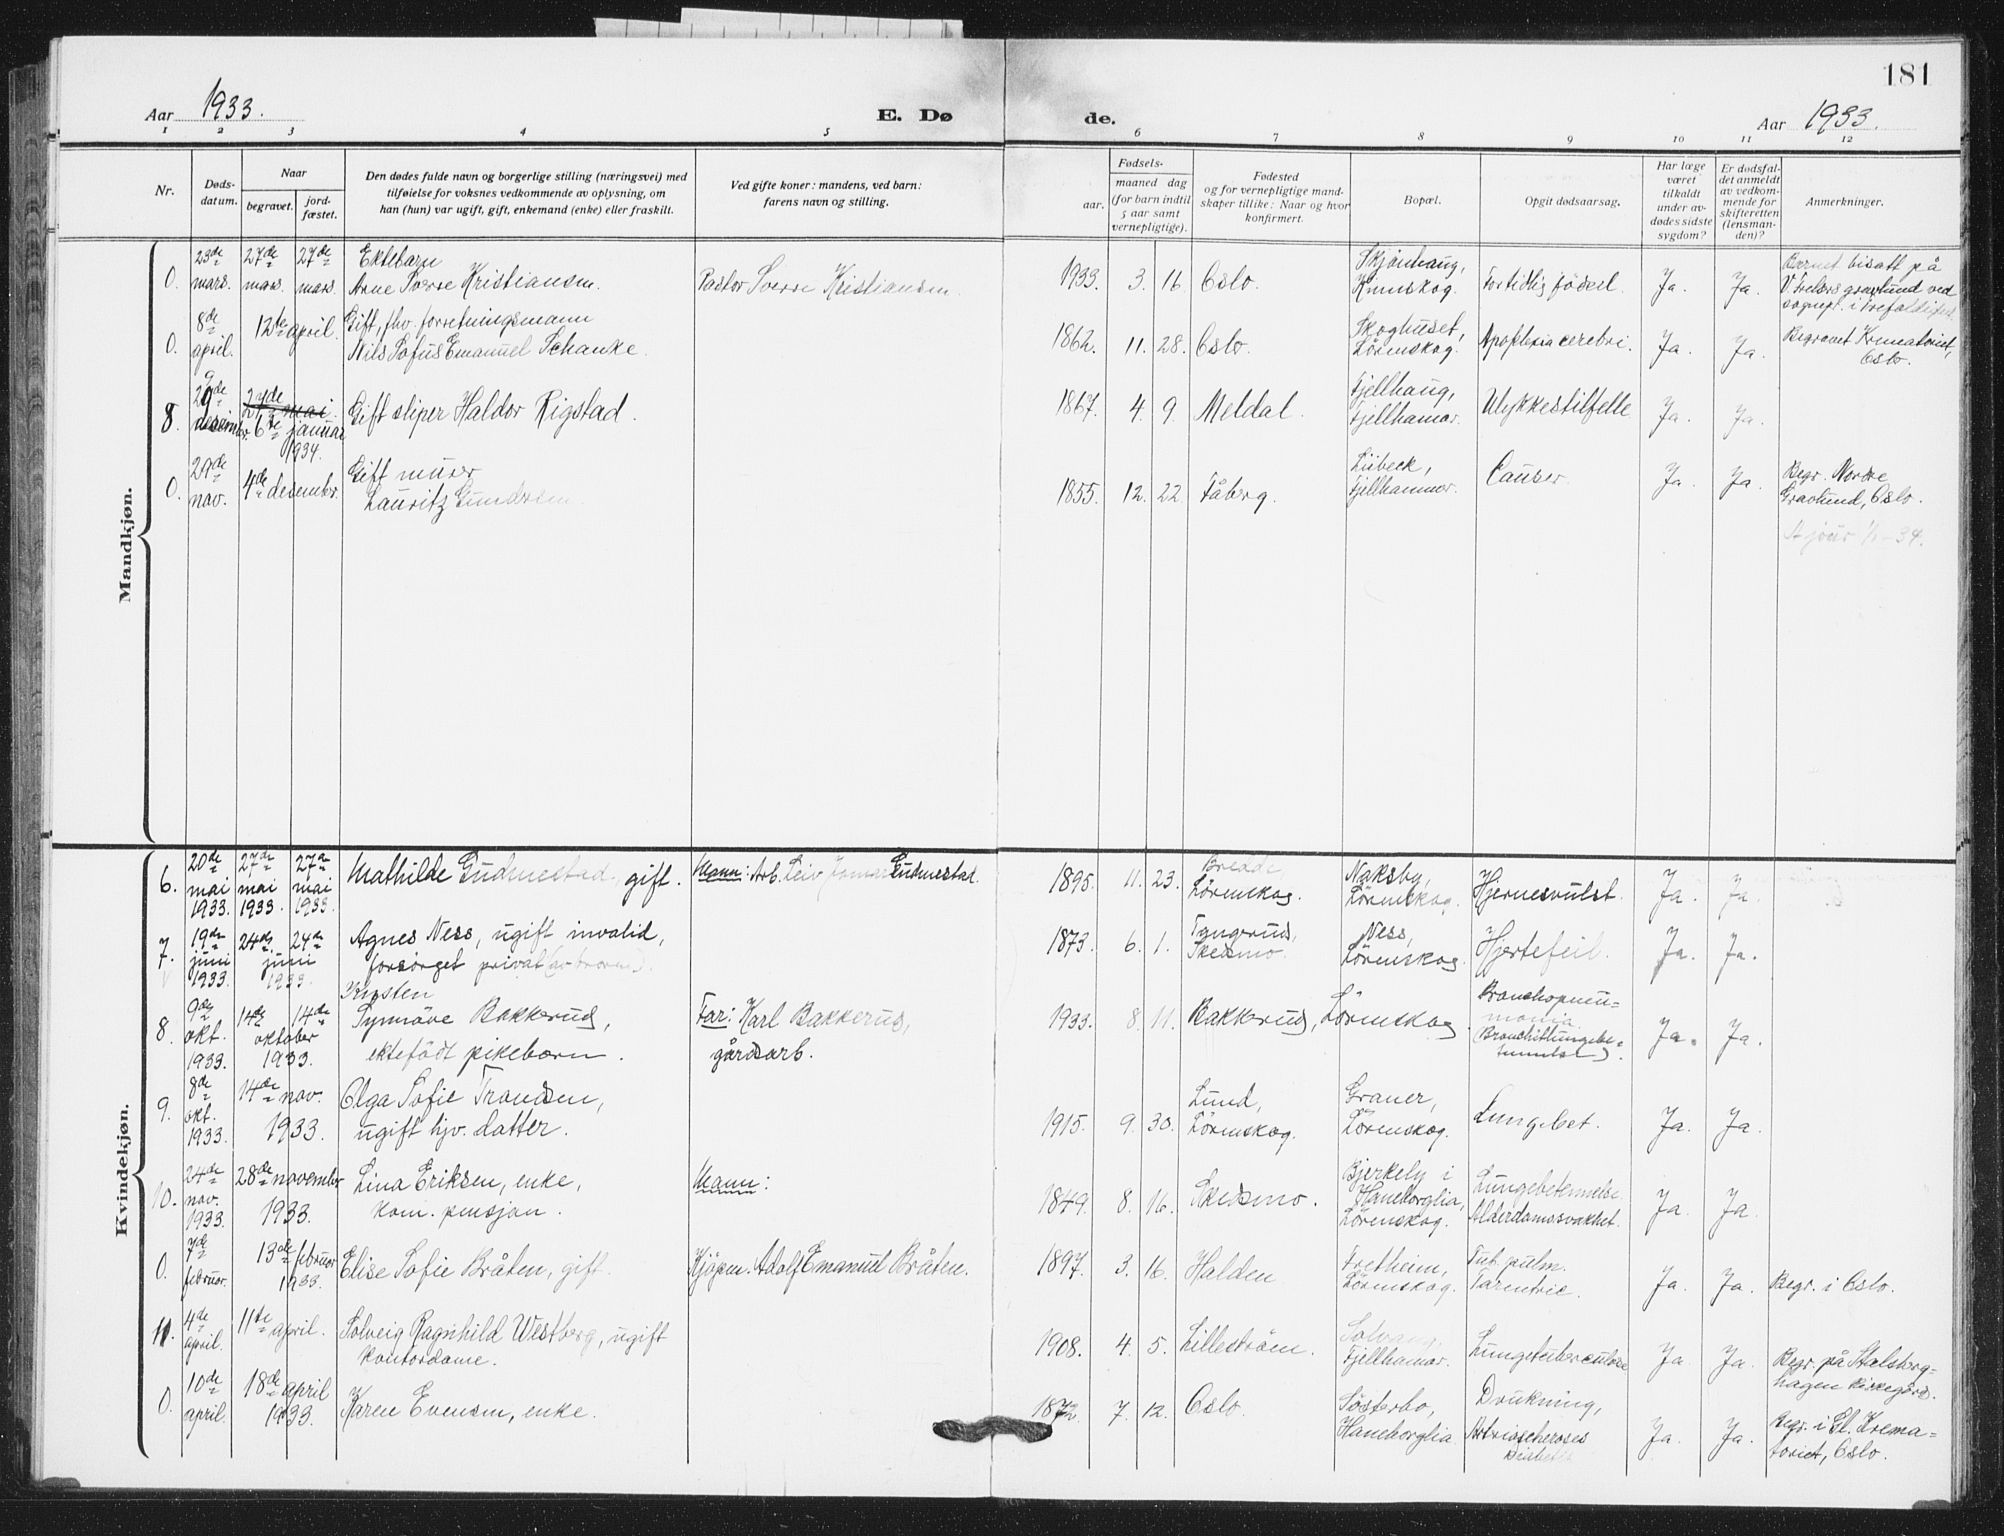 181
Aar 1933. E. Dø de. Aar 1933.
1 2 3 4 5 6 7 8 9 10 11 12
Nr.
Døds-
datum.
Naar
begravet.
jord-
fæstet.
Den dødes fulde navn og borgerlige stilling (næringsvei) med
tilføielse for voksnes vedkommende av oplysning, om
han (hun) var ugift, gift, enkemand (enke) eller fraskilt.
Ved gifte koner: mandens, ved barn:
farens navn og stilling.
Fødsels-
aar.
maaned dag
(for barn indtil
5 aar samt
vernepligtige).
Fødested
og for vernepligtige mand-
skaper tillike: Naar og hvor
konfirmert.
Bopæl.
Opgit dødsaarsag.
Har læge
været
tilkaldt
under av-
dødes sidste
sygdom?
Er dødsfal-
det anmeldt
av vedkom-
mende for
skifteretten
(lensman-
den)?
Anmerkninger.
Mandkjøn.
23de 27de 27de Ektebarn Skjönhaug, Barnet bisatt på
0. mars. mars. mars. Arne Sverre Kristiansen. Pastor Sverre Kristiansen. 1933. 3. 16. Oslo. Krunskog. For tidlig födsel. Ja. Ja. gravlund ved
8de 12te april. Gift, fhv. forretningsmann Skoghuset,
0. april. Nils Sofus Emanuel Schanke. 1862. 11. 28. Oslo. Lörenskog. Apoplexia cerebri. Ja. Ja. Begravet Krematoriet,
Oslo.
29de 27de mai. Fjellhaug,
8. desember. 6te januar Gift sliper Haldor Rigstad. 1867. 4. 9. Meldal. Fjellhamar. Ulykkestilfelle Ja. Ja.
1934.
29de Gift murer Lübeck, Begr. Nordre
0. nov. 4de desember. Lauritz Gundersen 1855. 12. 22. Fåberg. Fjellhammer. Cancer. Ja. Ja. Gravlund, Oslo.
Ajour 1/1-34.
Kvindekjøn.
20de 27de 27de
6. mai mai mai Mathilde Gudmestad, gift. Mann: Arb. Leiv Gudmestad. 1895. 11. 23. Lörenskog. Naksby, Lörenskog. Hjernesvulst. Ja. Ja.
1933. 1933. 1933.
19de 24de 24de Agnes Ness, ugift invalid, Ness,
7. juni juni forsörget privat 1873. 6. 1. Skedsmo. Lörenskog. Hjertefeil. Ja. Ja.
1933. 1933.
9de 14de 14de Kirsten Bronchopneu-
8. okt. oktober Synnöve Bakkerud, Far: Karl Bakkerud, 1933. 8. 11. Bakkerud, Lörenskog. monia. Ja. Ja.
1933. 1933. ektefödt pikebarn. gårdsarb. (Bronchitlungebe-
tennelse).
8de 14de nov. Olga Sofie Trondsen, Lund, Graner,
9. okt. 1933. ugift hjv. datter. 1915. 9. 30. Lörenskog. Lörenskog. Lungebet. Ja. Ja.
1933.
24de 28de november Lina Eriksen, enke, Mann: Bjerkely i Lungebetennelse.
10. nov. 1933. kom. pensjon. 1849. 8. 16. Skedsmo. Haneborglia, Alderdomssvakhet. Ja. Ja.
1933. Lörenskog.
7de 13de februar
0. februar. 1933. Elise Sofie Bråten, gift. Kjöpm. Adolf Emanuel Bråten. 1897. 3. 16. Halden. Fretheim, Lörenskog. Tub. pulm. Ja. Ja. Begr. i Oslo.
4de 11te april. Solveig Ragnhild Westberg, ugift
11. april. kontordame. 1908. 4. 5. Lilleström. Fjellhamar. Lungetuberculose Ja. Ja. Begr. på Stalsberg-
hagen kirkegård.
10de 18de april
0. april. 1933. Karen Evensen, enke. 1872. 7. 12. Oslo. Sösterbo, Haneborglia. Drukning, Ja. Ja. Begr. i Gl. Krema-
Diabetes toriet, Oslo.